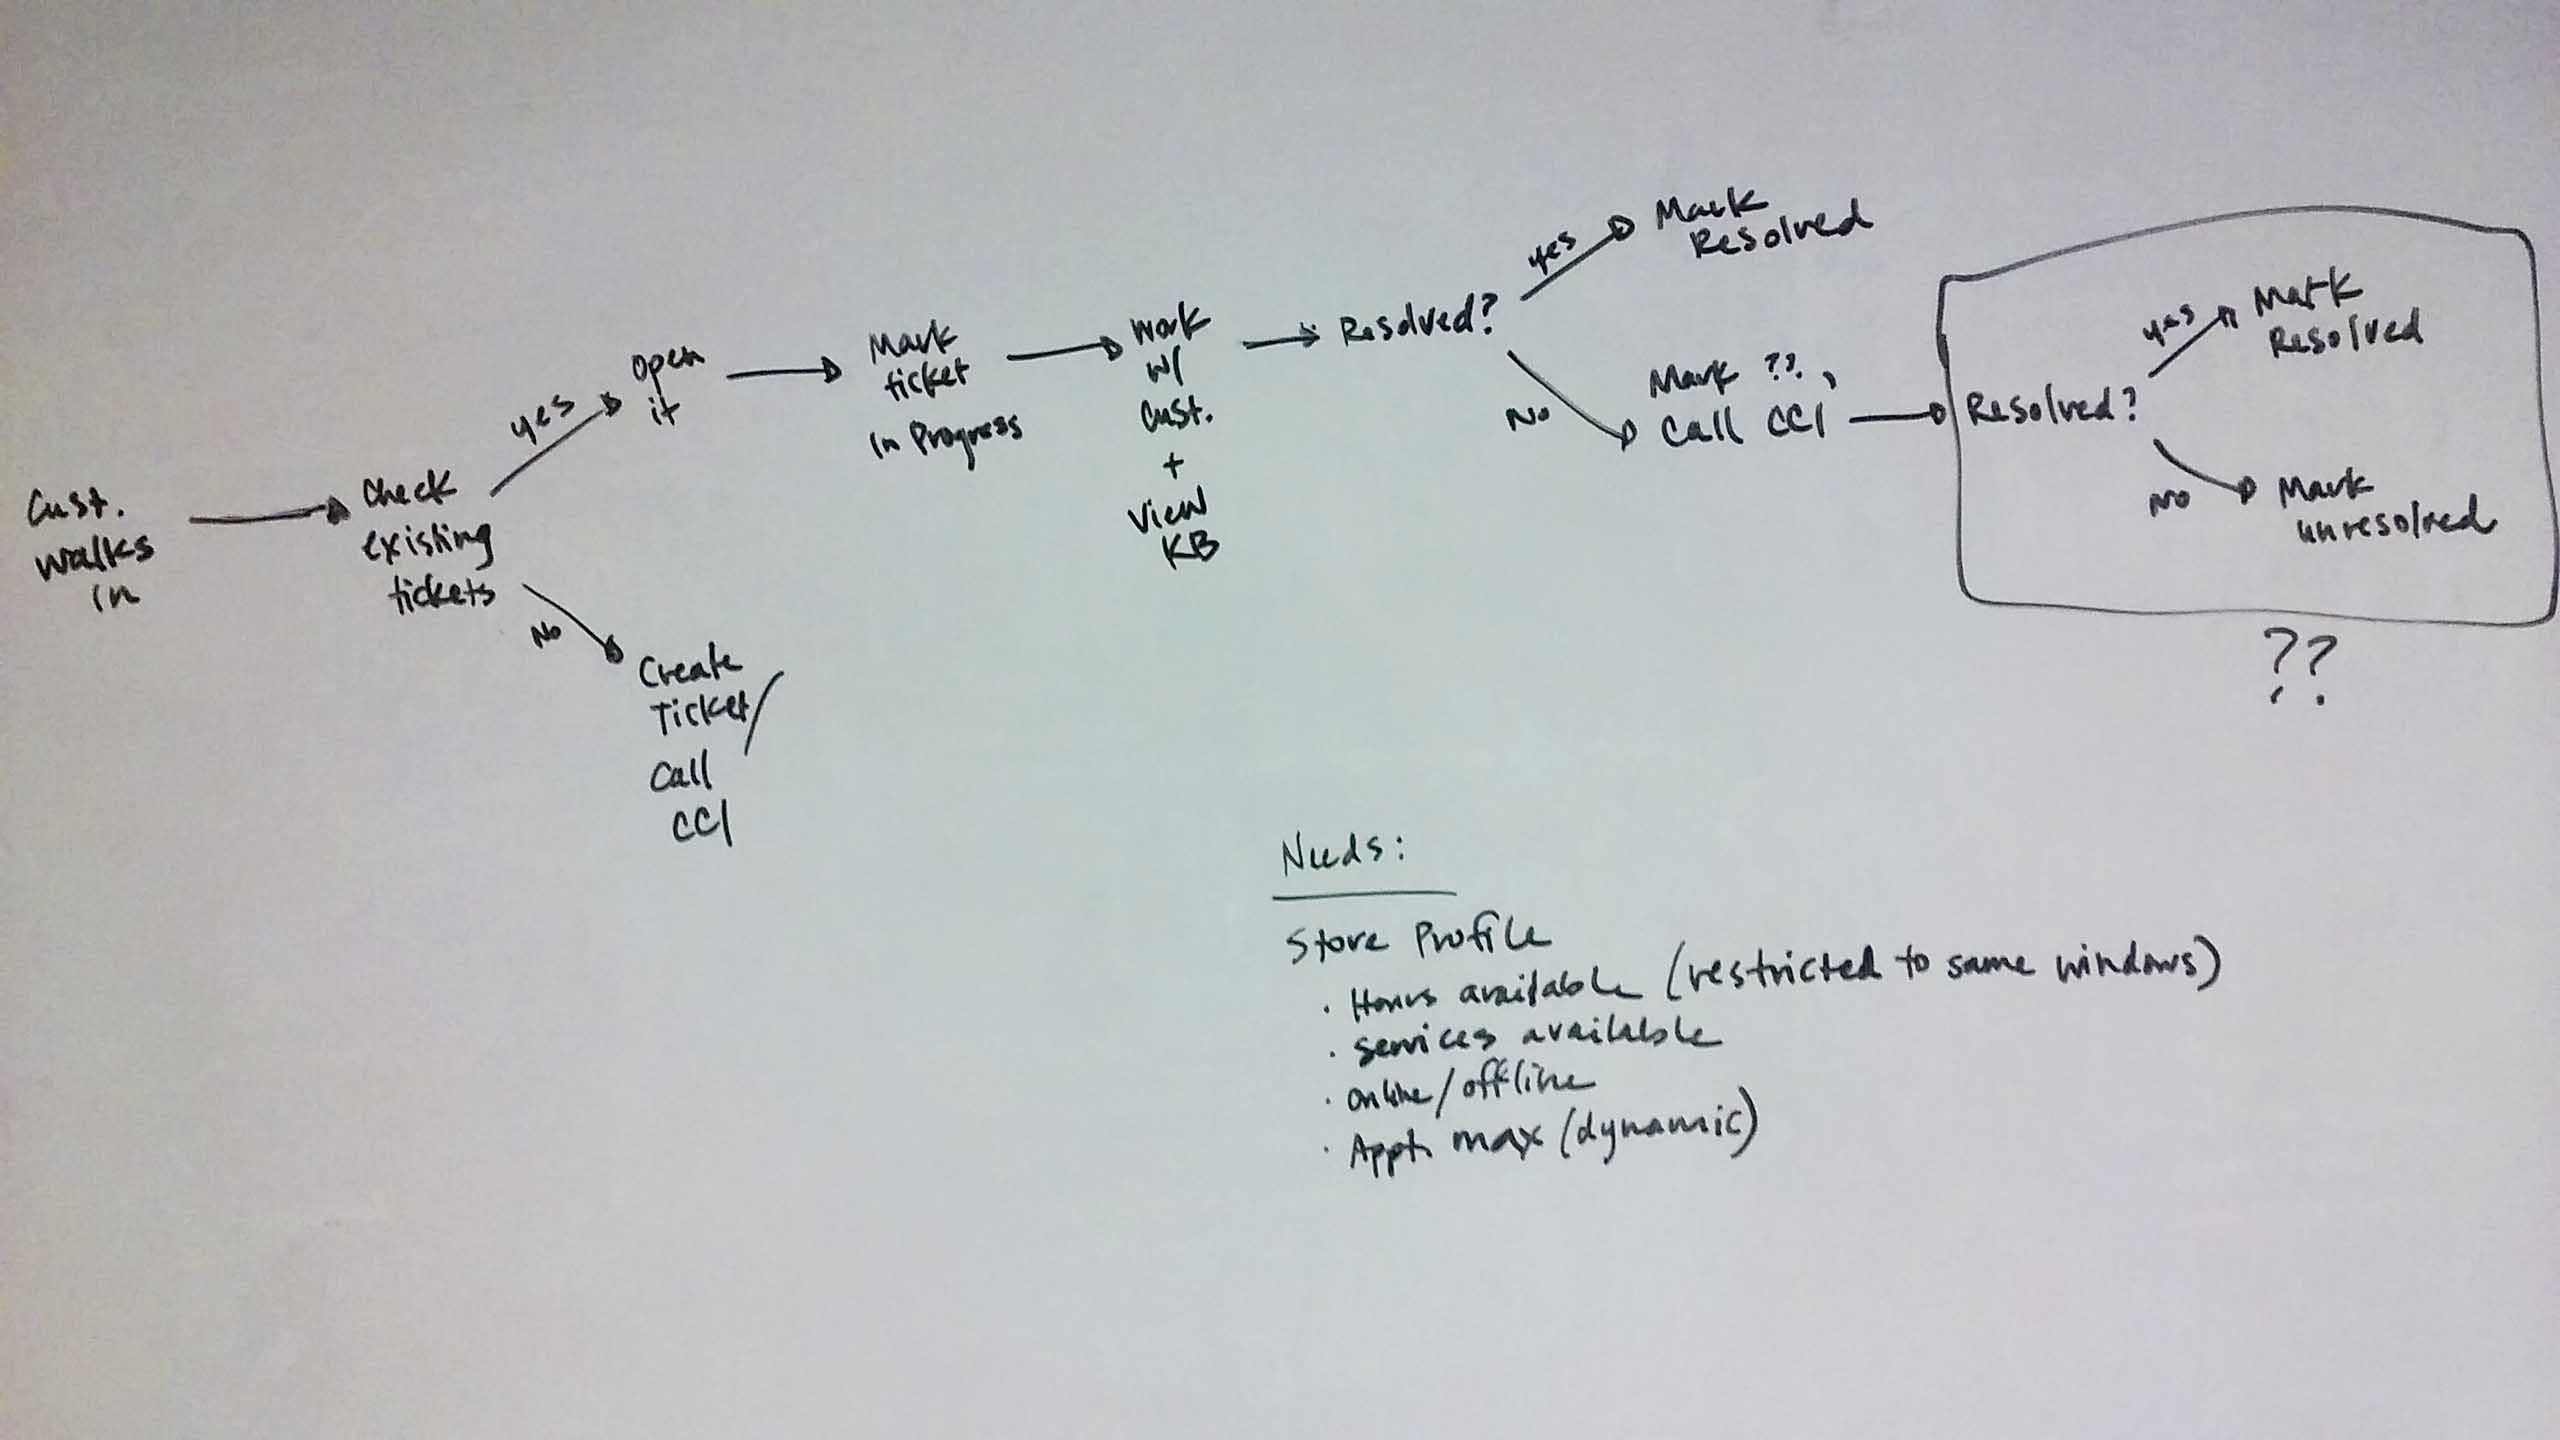 Cust.
walks
in
Check
existing
tickets
yes
open
it
No
Create
Ticket/
Call
CCI
Mark
ticket
In Progress
Work
w/
Cust.
+
View
KB
Resolved?
yes
Mark
Resolved
No
Mark ??,
Call CCI
Resolved?
yes
Mark
Resolved
No
Mark
unresolved
??
Needs:
Store Profile
· Hours available (restricted to same windows)
· services available
· online/offline
· Appt. max (dynamic)